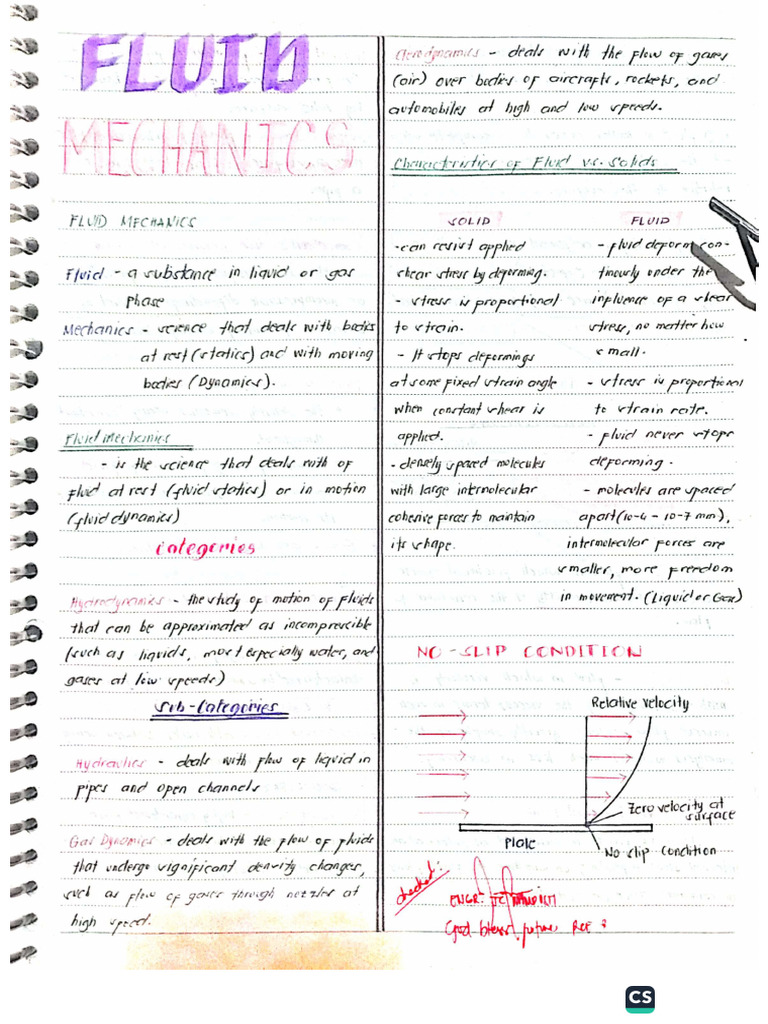 FLUID
MECHANICS
FLUID MECHANICS
Fluid - a substance in liquid or gas
phase
Mechanics - science that deals with bodies
at rest (statics) and with moving
bodies (Dynamics).
Fluid Mechanics
- is the science that deals with of
fluid at rest (fluid statics) or in motion
(fluid dynamics)
Categories
Hydrodynamics - the study of motion of fluids
that can be approximated as incompressible
(such as liquids, most especially water, and
gases at low speeds)
Sub-Categories
Hydraulics - deals with flow of liquid in
pipes and open channels
Gas Dynamics - deals with the flow of fluids
that undergo significant density changes,
such as flow of gases through nozzles at
high speed.
Aerodynamics - deals with the flow of gases
(air) over bodies of aircrafts, rockets, and
automobiles at high and low speeds.
Characteristics of Fluid vs. Solids
SOLID
-can resist applied
shear stress by deforming.
- stress is proportional
to strain.
- It stops deformings
at some fixed strain angle
when constant shear is
applied.
- densely spaced molecules
with large intermolecular
cohesive forces to maintain
its shape.
FLUID
- fluid deform con-
tinously under the
influence of a shear
stress, no matter how
small.
- stress is proportional
to strain rate.
- fluid never stops
deforming.
- molecules are spaced
apart (10-4 - 10-7 mm),
intermolecular forces are
smaller, more freedom
in movement. (Liquid or Gas)
NO-SLIP CONDITION
Relative velocity
Zero velocity at
surface
Plate
No slip condition
checked:
ENGR.
God bless, future REE
CS